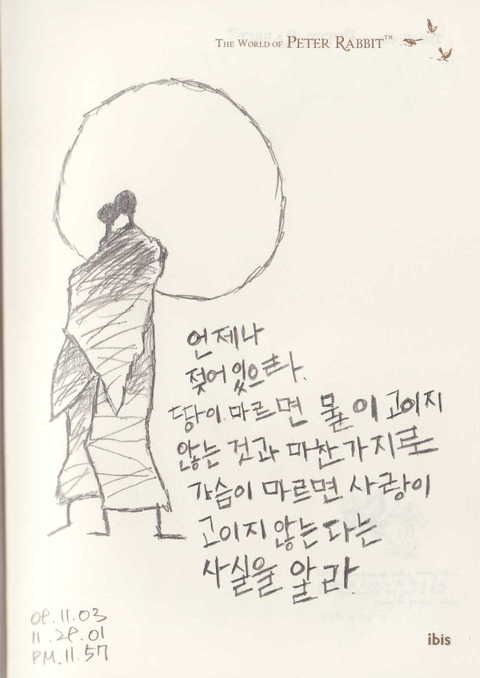 THE WORLD OF PETER RABBIT™
언제나
젖어 있으라.
땅이 마르면 물이 고이지
않는 것과 마찬가지로
가슴이 마르면 사랑이
고이지 않는다는
사실을 알라.
08.11.03
11.28.01
PM.11.57
ibis